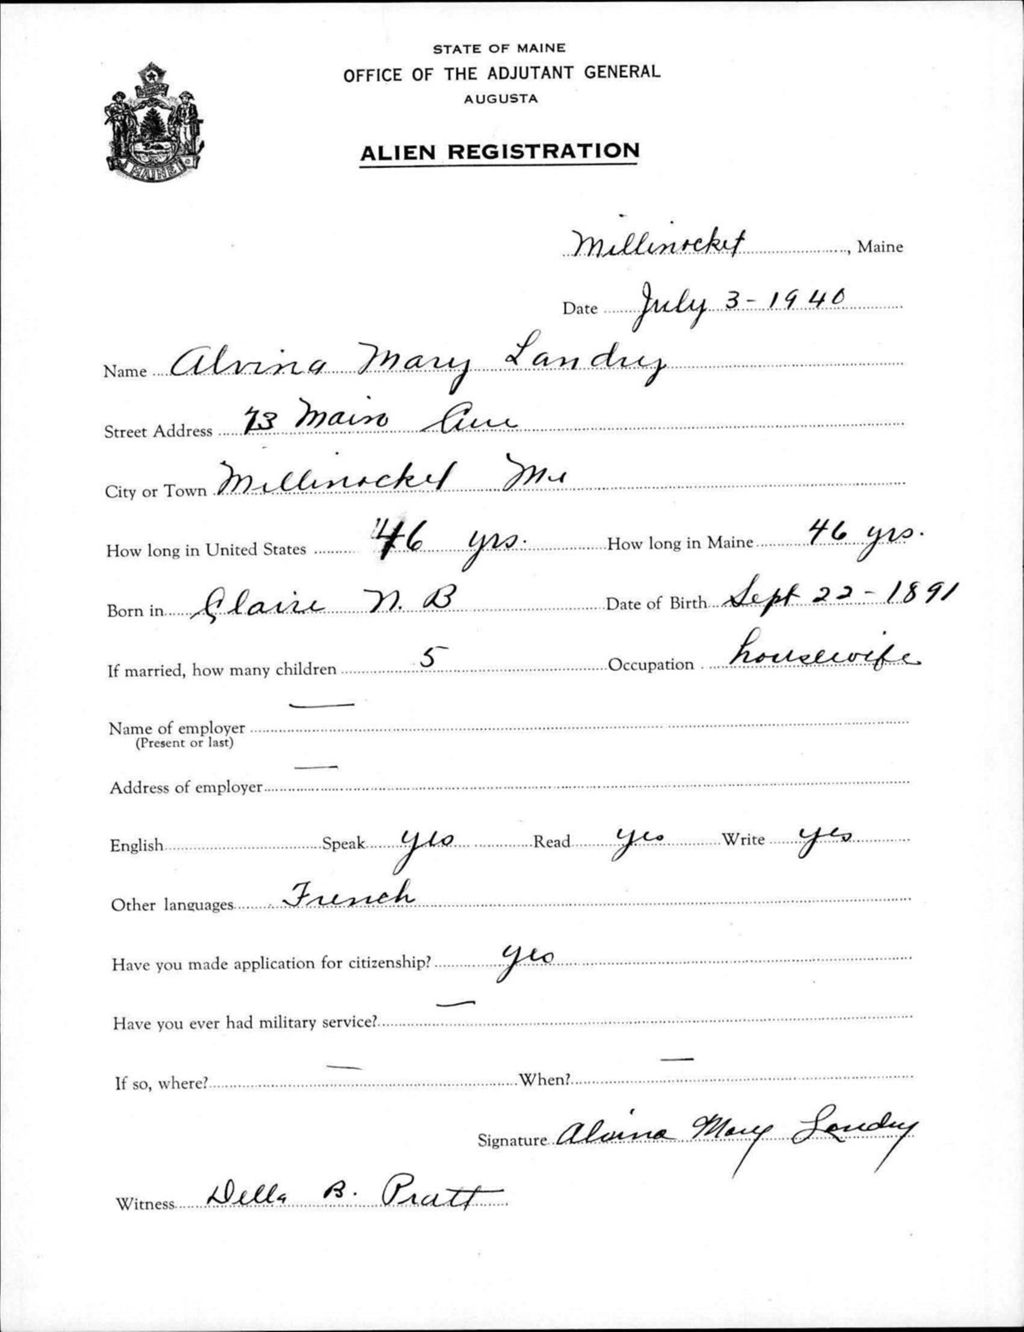 STATE OF MAINE
OFFICE OF THE ADJUTANT GENERAL
AUGUSTA
ALIEN REGISTRATION
MAINE
Millinocket, Maine
Date July 3-1940
Name Alvina Mary Landry
Street Address 73 Main Ave
City or Town Millinocket Me
How long in United States 46 yrs. How long in Maine 46 yrs.
Born in Claire N. B Date of Birth Sept 22-1891
If married, how many children 5 Occupation housewife
Name of employer —
(Present or last)
Address of employer —
English Speak yes Read yes Write yes
Other languages French
Have you made application for citizenship? yes
Have you ever had military service? —
If so, where? — When? —
Signature Alvina Mary Landry
Witness Della B. Pratt